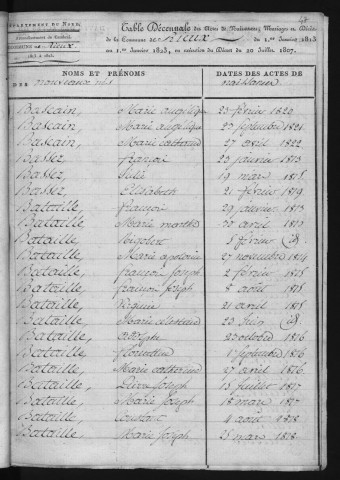 DÉPARTEMENT DU NORD,
Arrondissement de Cambrai.
Rieux
1813 à 1823.
Table Décennale des Actes de Naissances, Mariages et Décès
de la Commune de Rieux du 1.er Janvier 1813
au 1.er Janvier 1823, en exécution du Décret du 20 Juillet 1807.
NOMS ET PRÉNOMS
DES nouveaux nés
DATES DES ACTES DE
naissances
Bascain, Marie angélique 23 février 1820
Bascain, Marie angélique 27 septembre 1821
Bascain, Marie catherine 27 avril 1822
Bassez, françois 23 janvier 1813
Bassez, Julie 19 mars 1815
Bassez, Elisabeth 21 février 1819
Bataille, françois 29 janvier 1813
Bataille, Marie marthe 20 avril 1813
Bataille, 5 février (id)
Bataille, Marie apoline 27 novembre 1814
Bataille, françois Joseph 2 février 1815
Bataille, françois Joseph 8 août 1815
Bataille, Régine 21 avril 1815
Bataille, Marie 23 Juin (id)
Bataille, Adolphe 23 octobre 1816
Bataille, florentine septembre 1816
Bataille, Marie catherine 27 avril 1816
Bataille, Joseph 15 juillet 1817
Bataille, Marie Joseph 18 mars 1817
Bataille, Constant 4 août 1818
Bataille, Marie Joseph 21 mars 1818